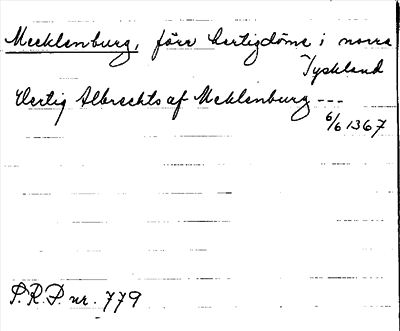 Mecklenburg, förr hertigdöme i norra
Tyskland
Hertig Albrechts af Meklenburg ---
6/6 1367
S.R.P. nr. 779